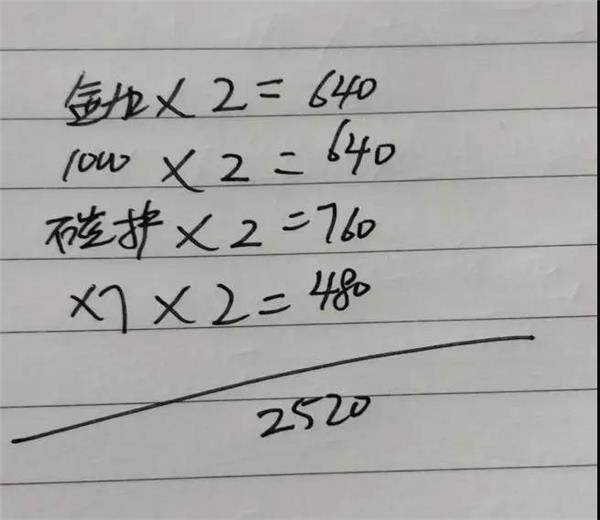 金加 × 2 = 640
1000 × 2 = 640
磁护 × 2 = 760
×7 × 2 = 480
2520